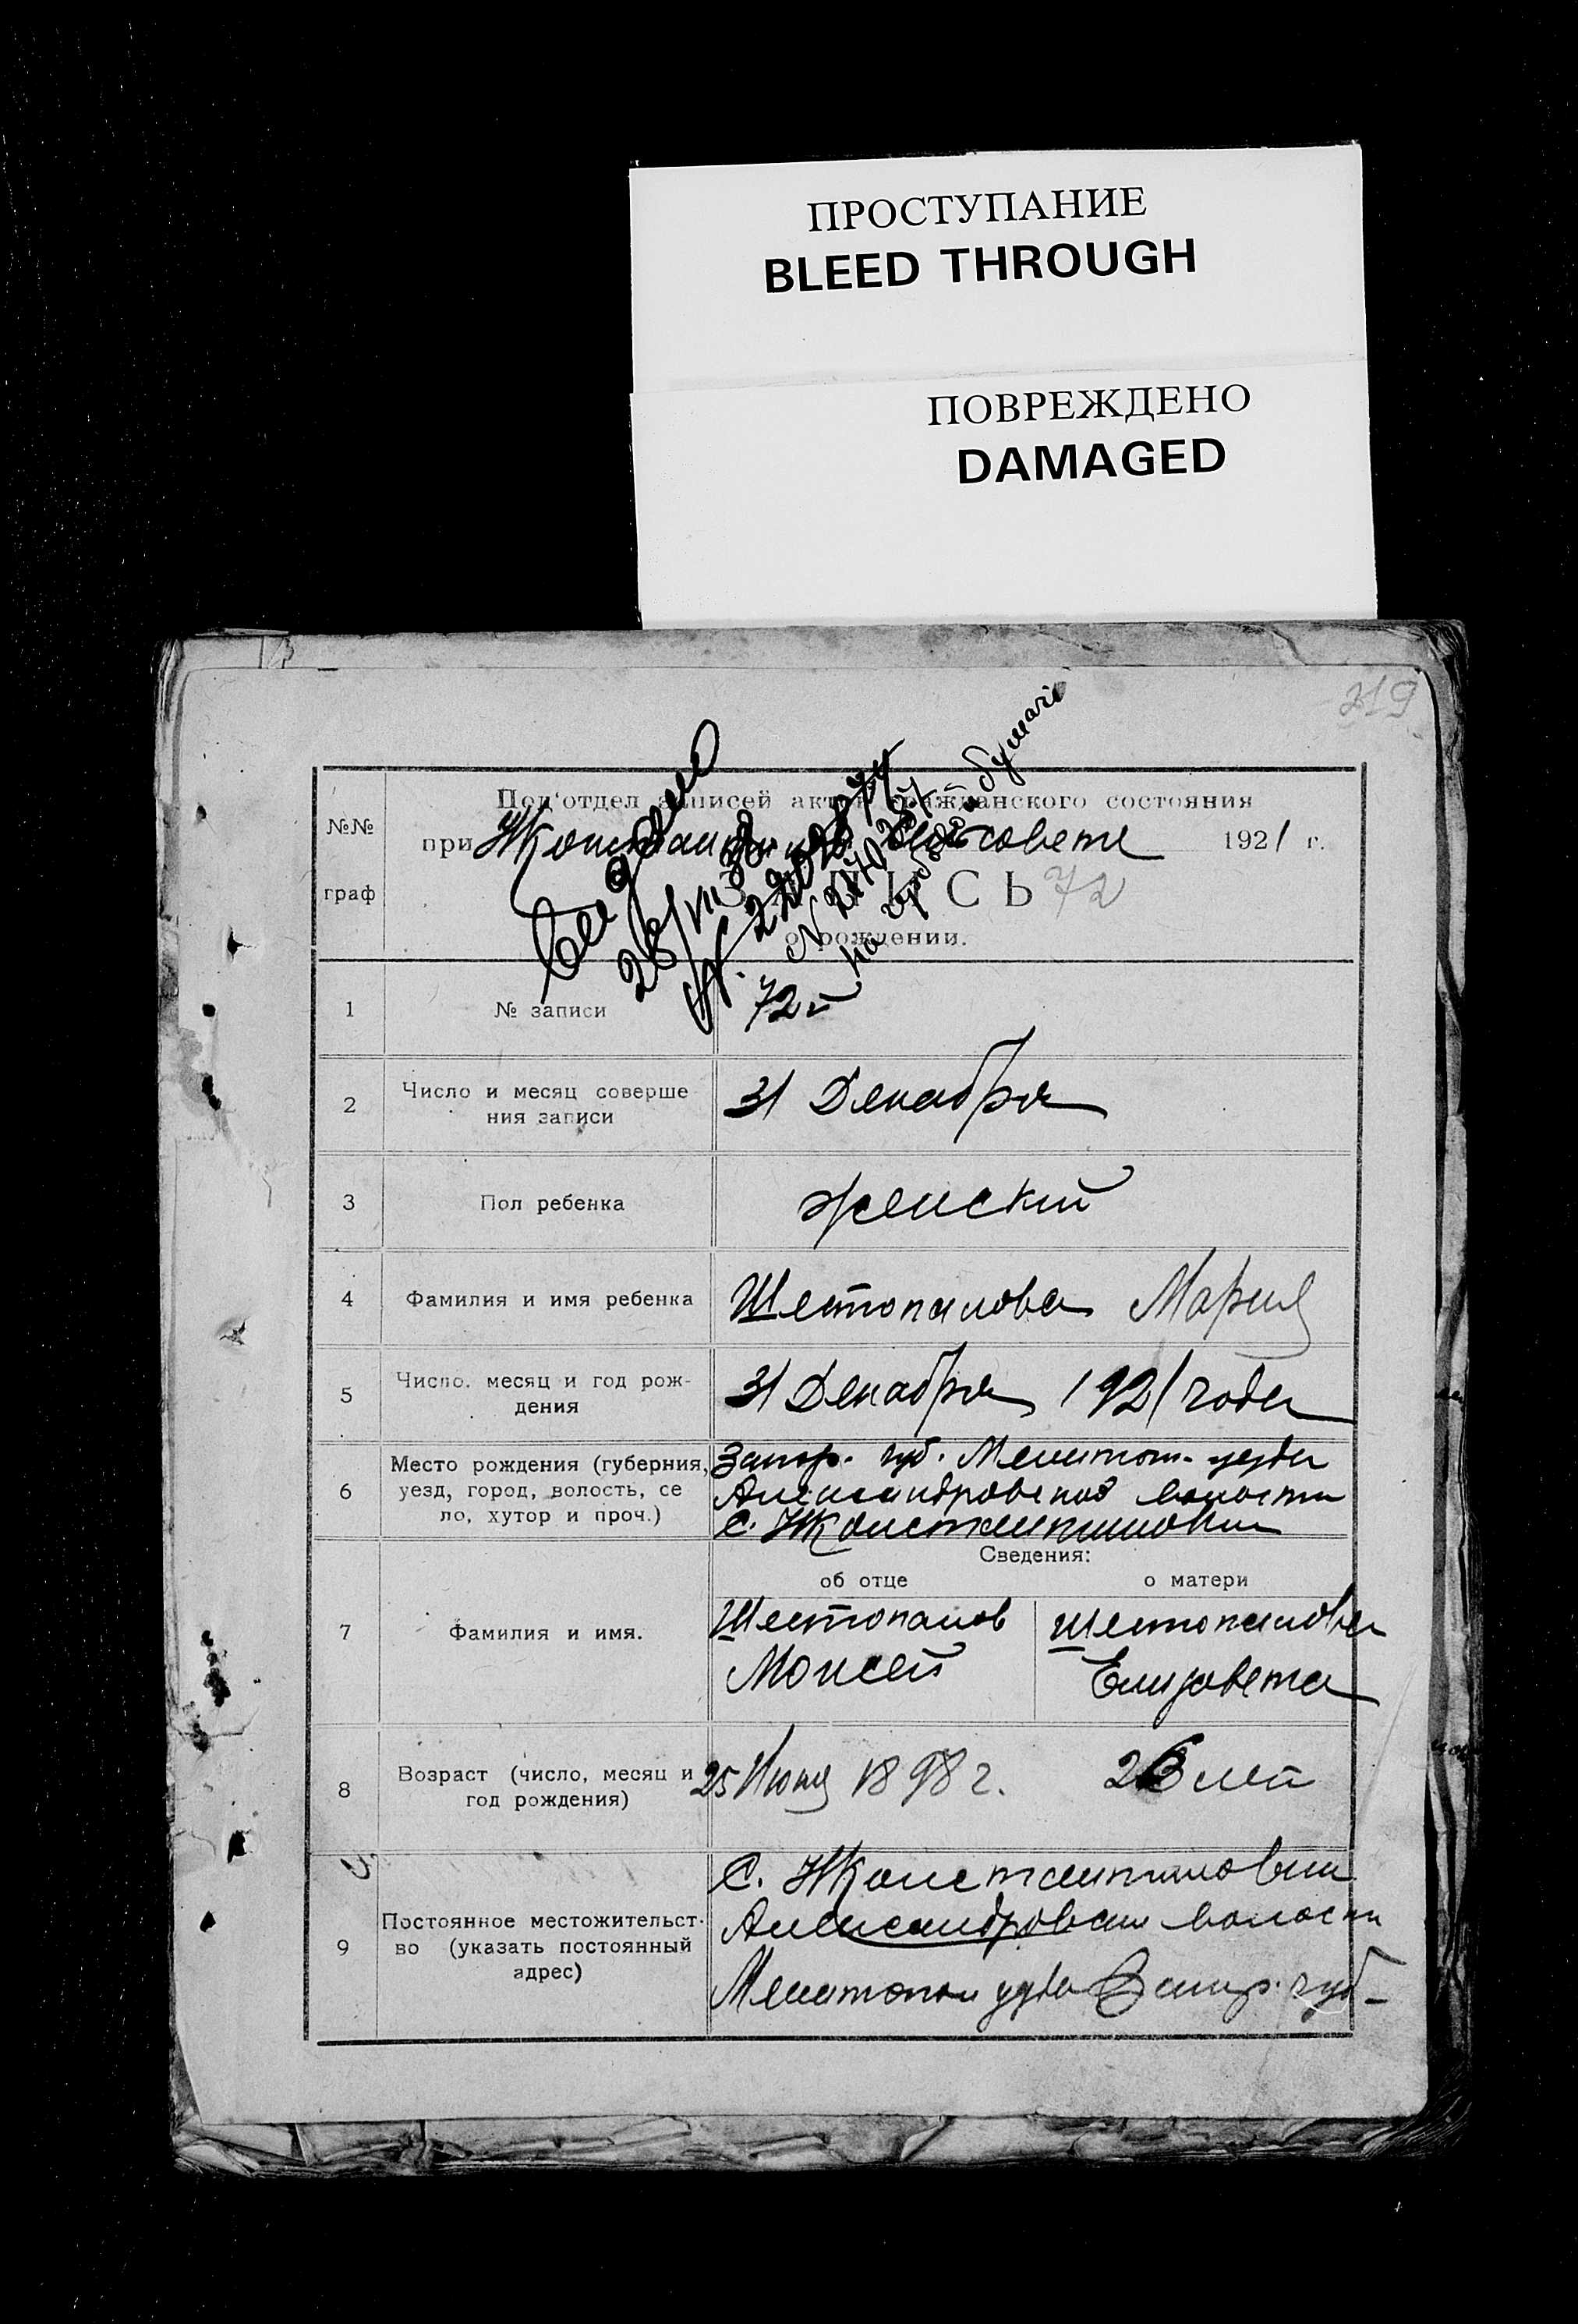 ПРОСТУПАНИЕ
BLEED THROUGH
ПОВРЕЖДЕНО
DAMAGED
319
№№
граф
Под'отдел записей актов гражданского состояния
при сельсовете 1921 г.
ЗАПИСЬ 72
о рождении.
на гербовой бумаге
1 № записи 72-й
2 Число и месяц соверше
ния записи
31 Декабря
3 Пол ребенка женский
4 Фамилия и имя ребенка Шестопалова Мария
5 Число. месяц и год рож-
дения
31 Декабря 1921 года
6 Место рождения (губерния,
уезд, город, волость, се
ло, хутор и проч.)
Запор. губ. Мелитоп. уезда
Александровской волости
с. Константиновки
Сведения:
об отце о матери
7 Фамилия и имя.
Шестопалов
Моисей
Шестопалова
Елизавета
8 Возраст (число, месяц и
год рождения)
25 1898 г.
лет
9 Постоянное местожительст-
во (указать постоянный
адрес)
С. Константиновки
Александровской волости
Мелитопол уезда Запор. губ-